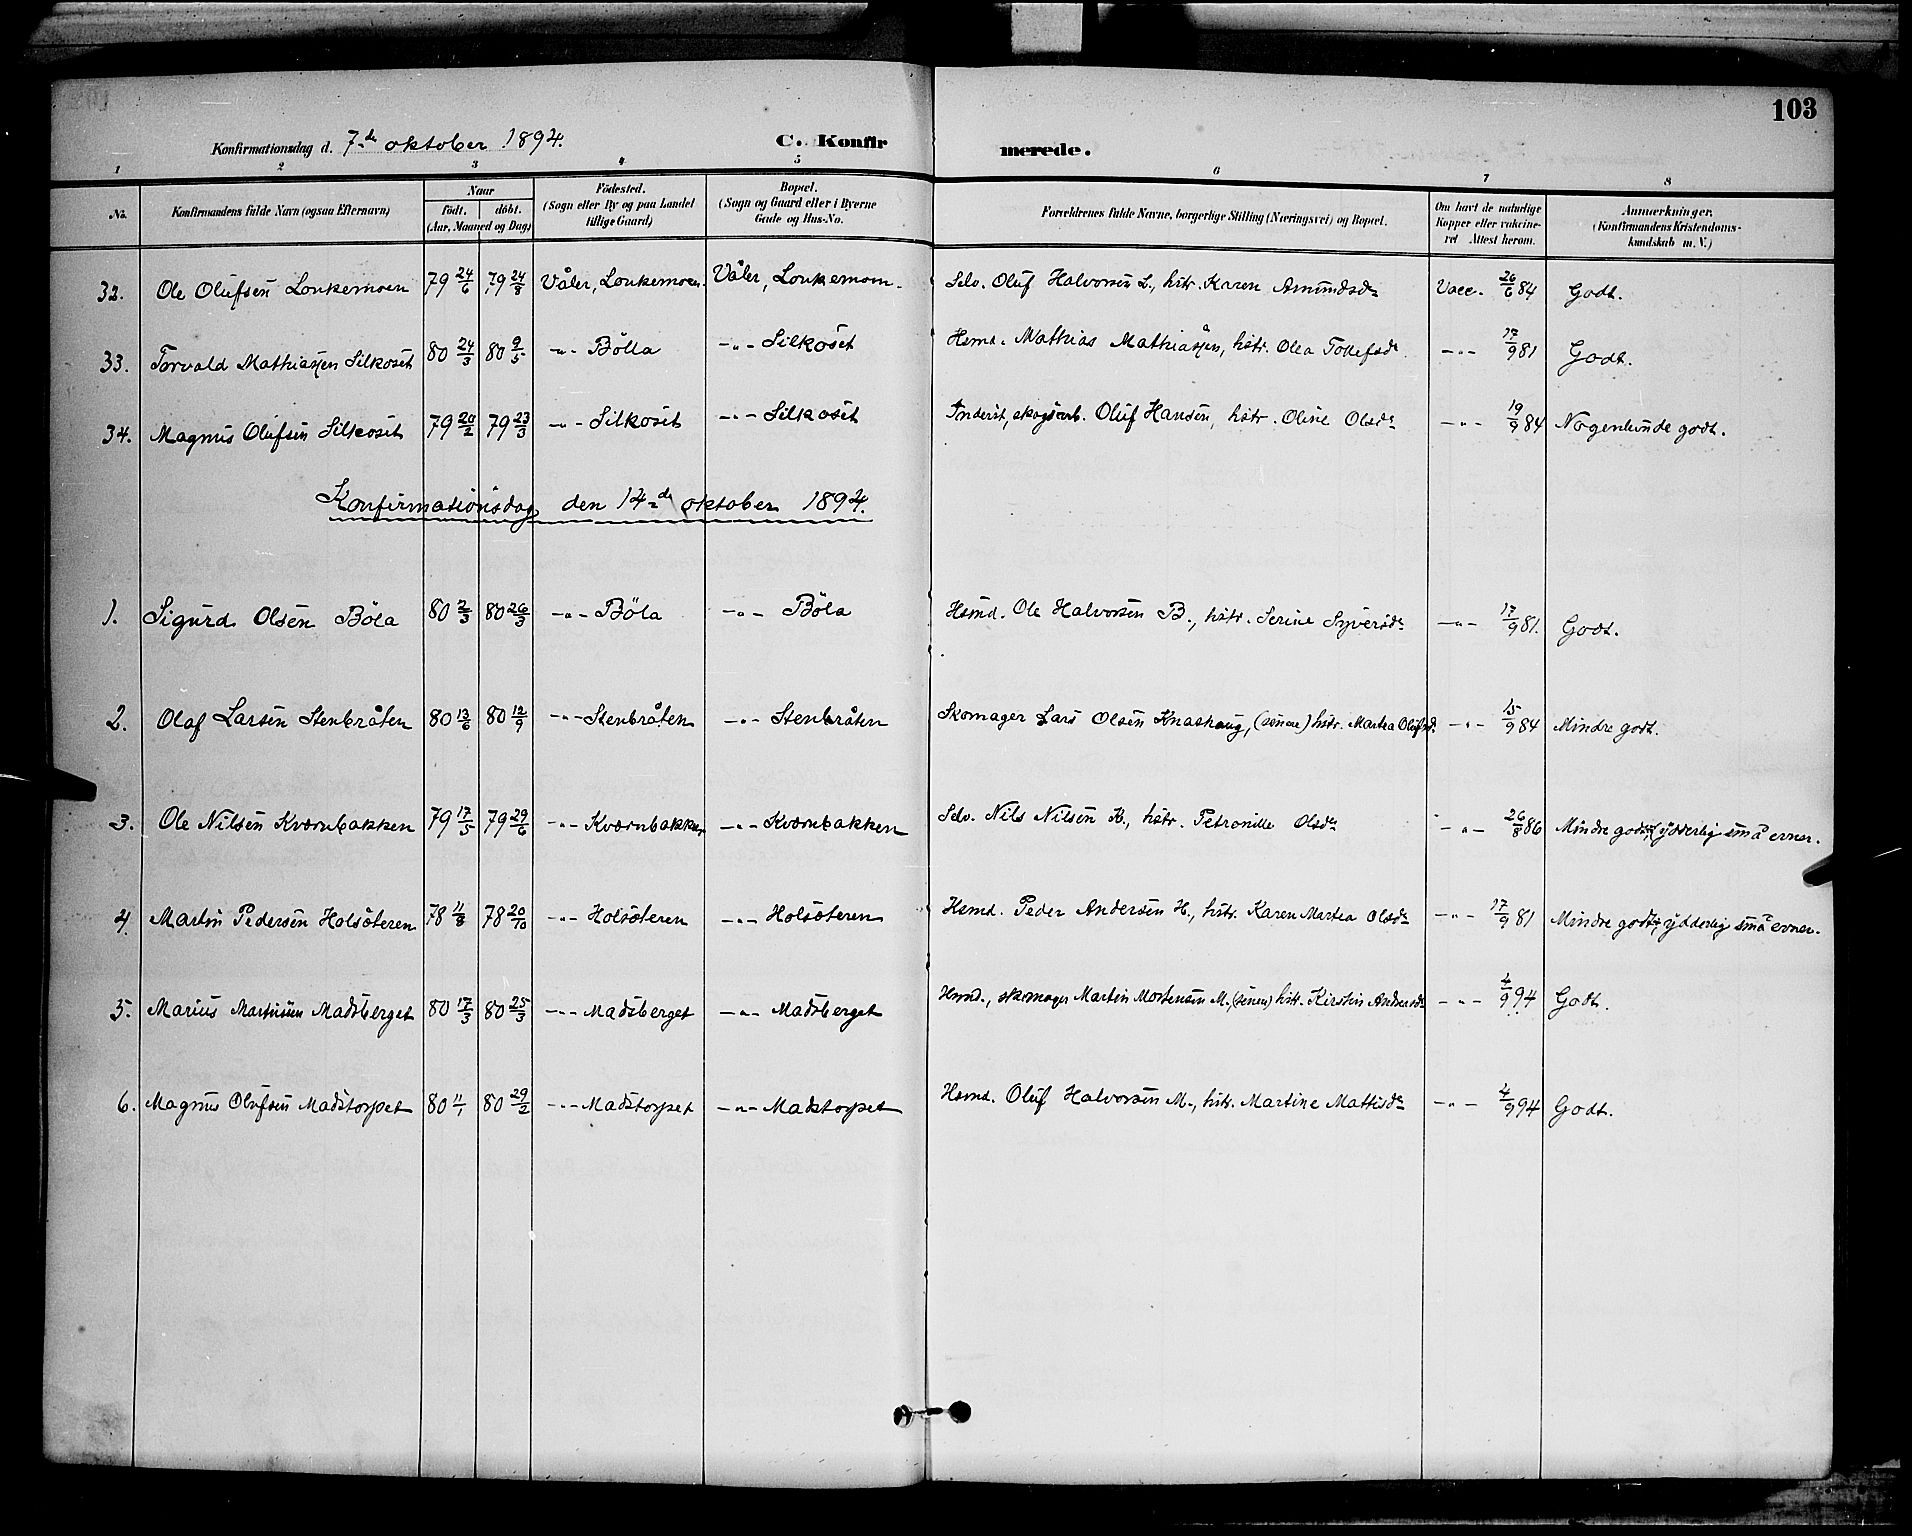 103
Konfirmationsdag d. 7-de oktober 1894. C. Konfirmerede.
1 2 3 4 5 6 7 8
No. Konfirmandens fulde Navn (ogsaa Efternavn) Naar födt. döbt. (Aar, Maaned og Dag) Födested. (Sogn eller By og paa Landet tillige Gaard) Bopæl. (Sogn og Gaard eller i Byerne Gade og Hus-No. Forældrenes fulde Navne, borgerlige Stilling (Næringsvei) og Bopæl. Om havt de naturlige Kopper eller vakcineret Attest herom. Anmærkninger. (Konfirmandens Kristendomskundskab m. V.)
32. Ole Olufsen Lonkemoen 79 24/6 79 24/8 Våler, Lonkemoen. Våler, Lonkemoen. Selv. Oluf Halvorsen L., hstr. Karen Amundsdr Vacc. 26/6 84 Godt.
33. Torvald Mathiassen Silkoset 80 24/3 80 9/5 -"- Bölla -"- Silkoset Hsmd. Mathias Mathiassen, hstr. Olea Tollefsdr -"- 17/9 81 Godt.
34. Magnus Olufsen Silkoset 79 20/2 79 23/3 -"- Silkoset -"- Silkoset Inderst, skogsarb. Oluf Hansen, hstr. Oline Olsdr -"- 19/9 84 Nogenlunde godt.
Konfirmationsdag den 14-de oktober 1894.
1. Sigurd Olsen Böla 80 2/3 80 26/3 -"- Böla -"- Böla Hsmd. Ole Halvorsen B., hstr. Serine Syversdr -"- 17/9 81. Godt.
2. Olaf Larsen Stenbråten 80 13/6 80 12/9 -"- Stenbråten -"- Stenbråten Skomager Lars Olsen Knashaug, (senere) hstr. Martea Olufsd. -"- 15/9 84 Mindre godt.
3. Ole Nilsen Kværnbakken 79 17/5 79 29/6 -"- Kværnbakken -"- Kværnbakken Selv. Nils Nilsen K., hstr. Petronille Olsdr -"- 26/8 86 Mindre godt, ydderlig små evner.
4. Martin Pedersen Holsæteren 78 11/8 78 20/10 -"- Holsæteren -"- Holsæteren Hsmd. Peder Andersen H., hstr. Karen Martea Olsdr -"- 17/9 81 Mindre godt, ydderlig små evner.
5. Marius Martinsen Madsberget 80 17/3 80 25/3 -"- Madsberget -"- Madsberget Hsmd., skomager Martin Mortensen M., (senere) hstr. Kirstin Andersdr -"- 4/9 94 Godt.
6. Magnus Olufsen Madstorpet 80 11/1 80 29/2 -"- Madstorpet -"- Madstorpet Hsmd. Oluf Halvorsen M., hstr. Martine Mattisdr -"- 4/9 94 Godt.